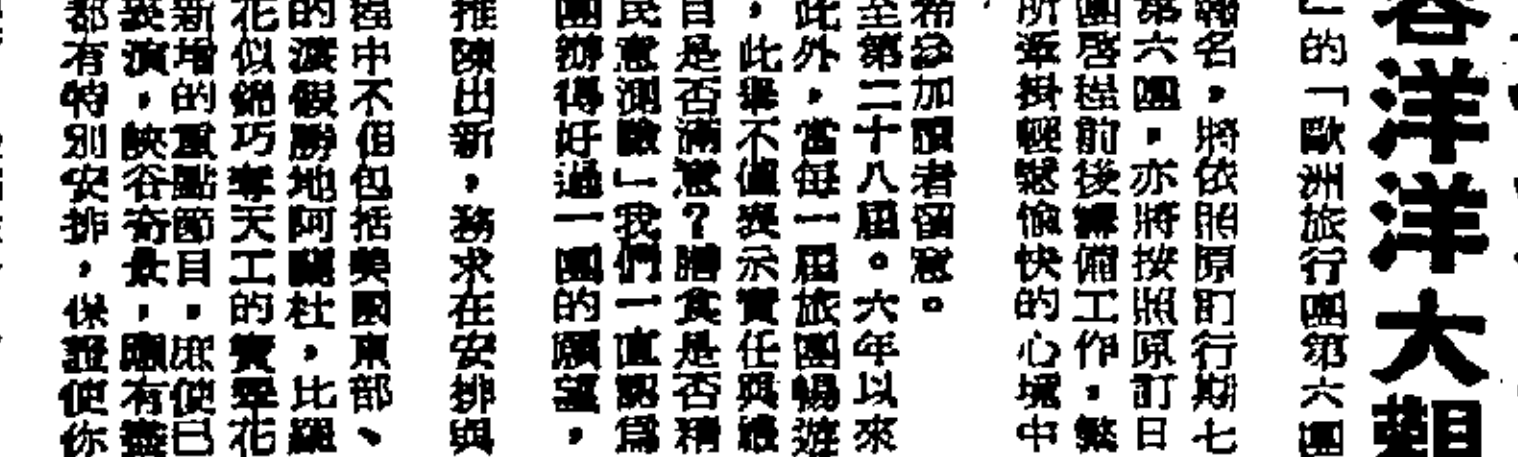 容洋洋大觀
」的「歐洲旅行團第六團
報名,將依照原訂行期七
第六團,亦將按照原訂日
團啓程前後籌備工作,繁
所牽掛輕鬆愉快的心境中
希參加讀者留意。
至第二十八屆。六年以來
此外,當每一屆旅團暢遊
,此舉不僅表示責任與
目是否滿意?膳食是否精
民意測驗」我們一直認爲
團辦得好過一團的願望,
推陳出新,務求在安排與
程中不但包括美國東部、
的渡假勝地阿 杜,比羅
花似錦巧奪天工的寶雲花
新增的重點節目。庶使已
表演,峽谷奇景,願有盡
都有特別安排,保證使你